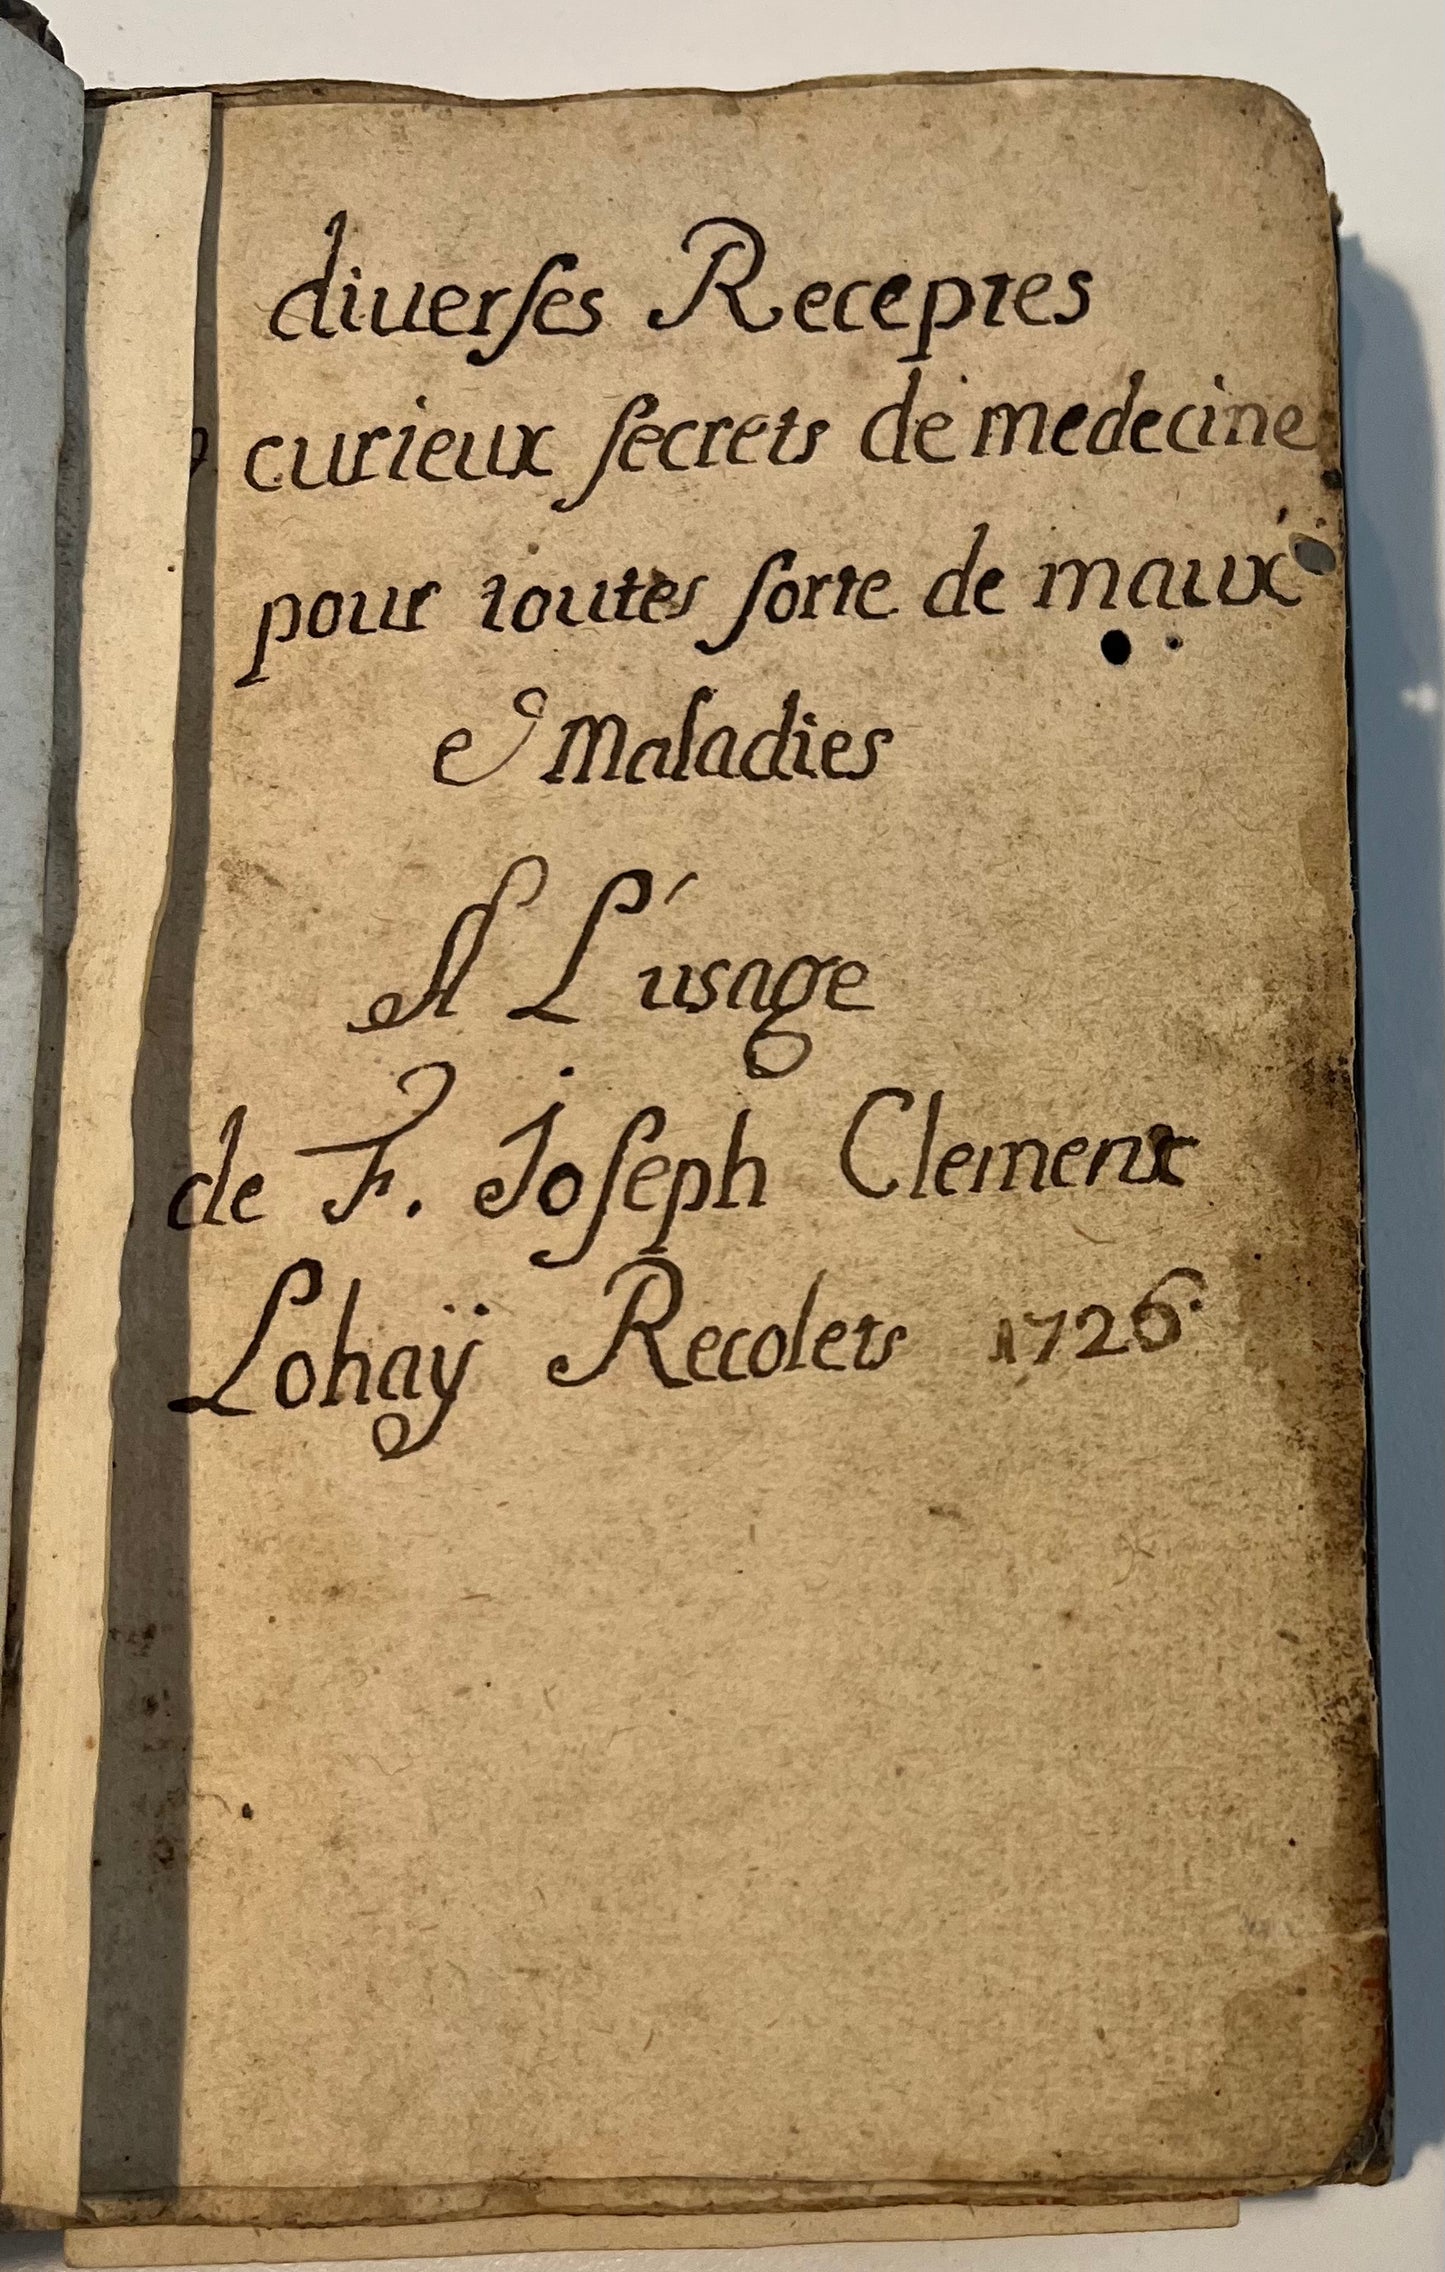 diuerſes Receptes
curieux ſecrets de medecine
pour toutes ſorte de maux
et Maladies
A L'usage
de F. Joſeph Clement
Lohaÿ Recolets 1726